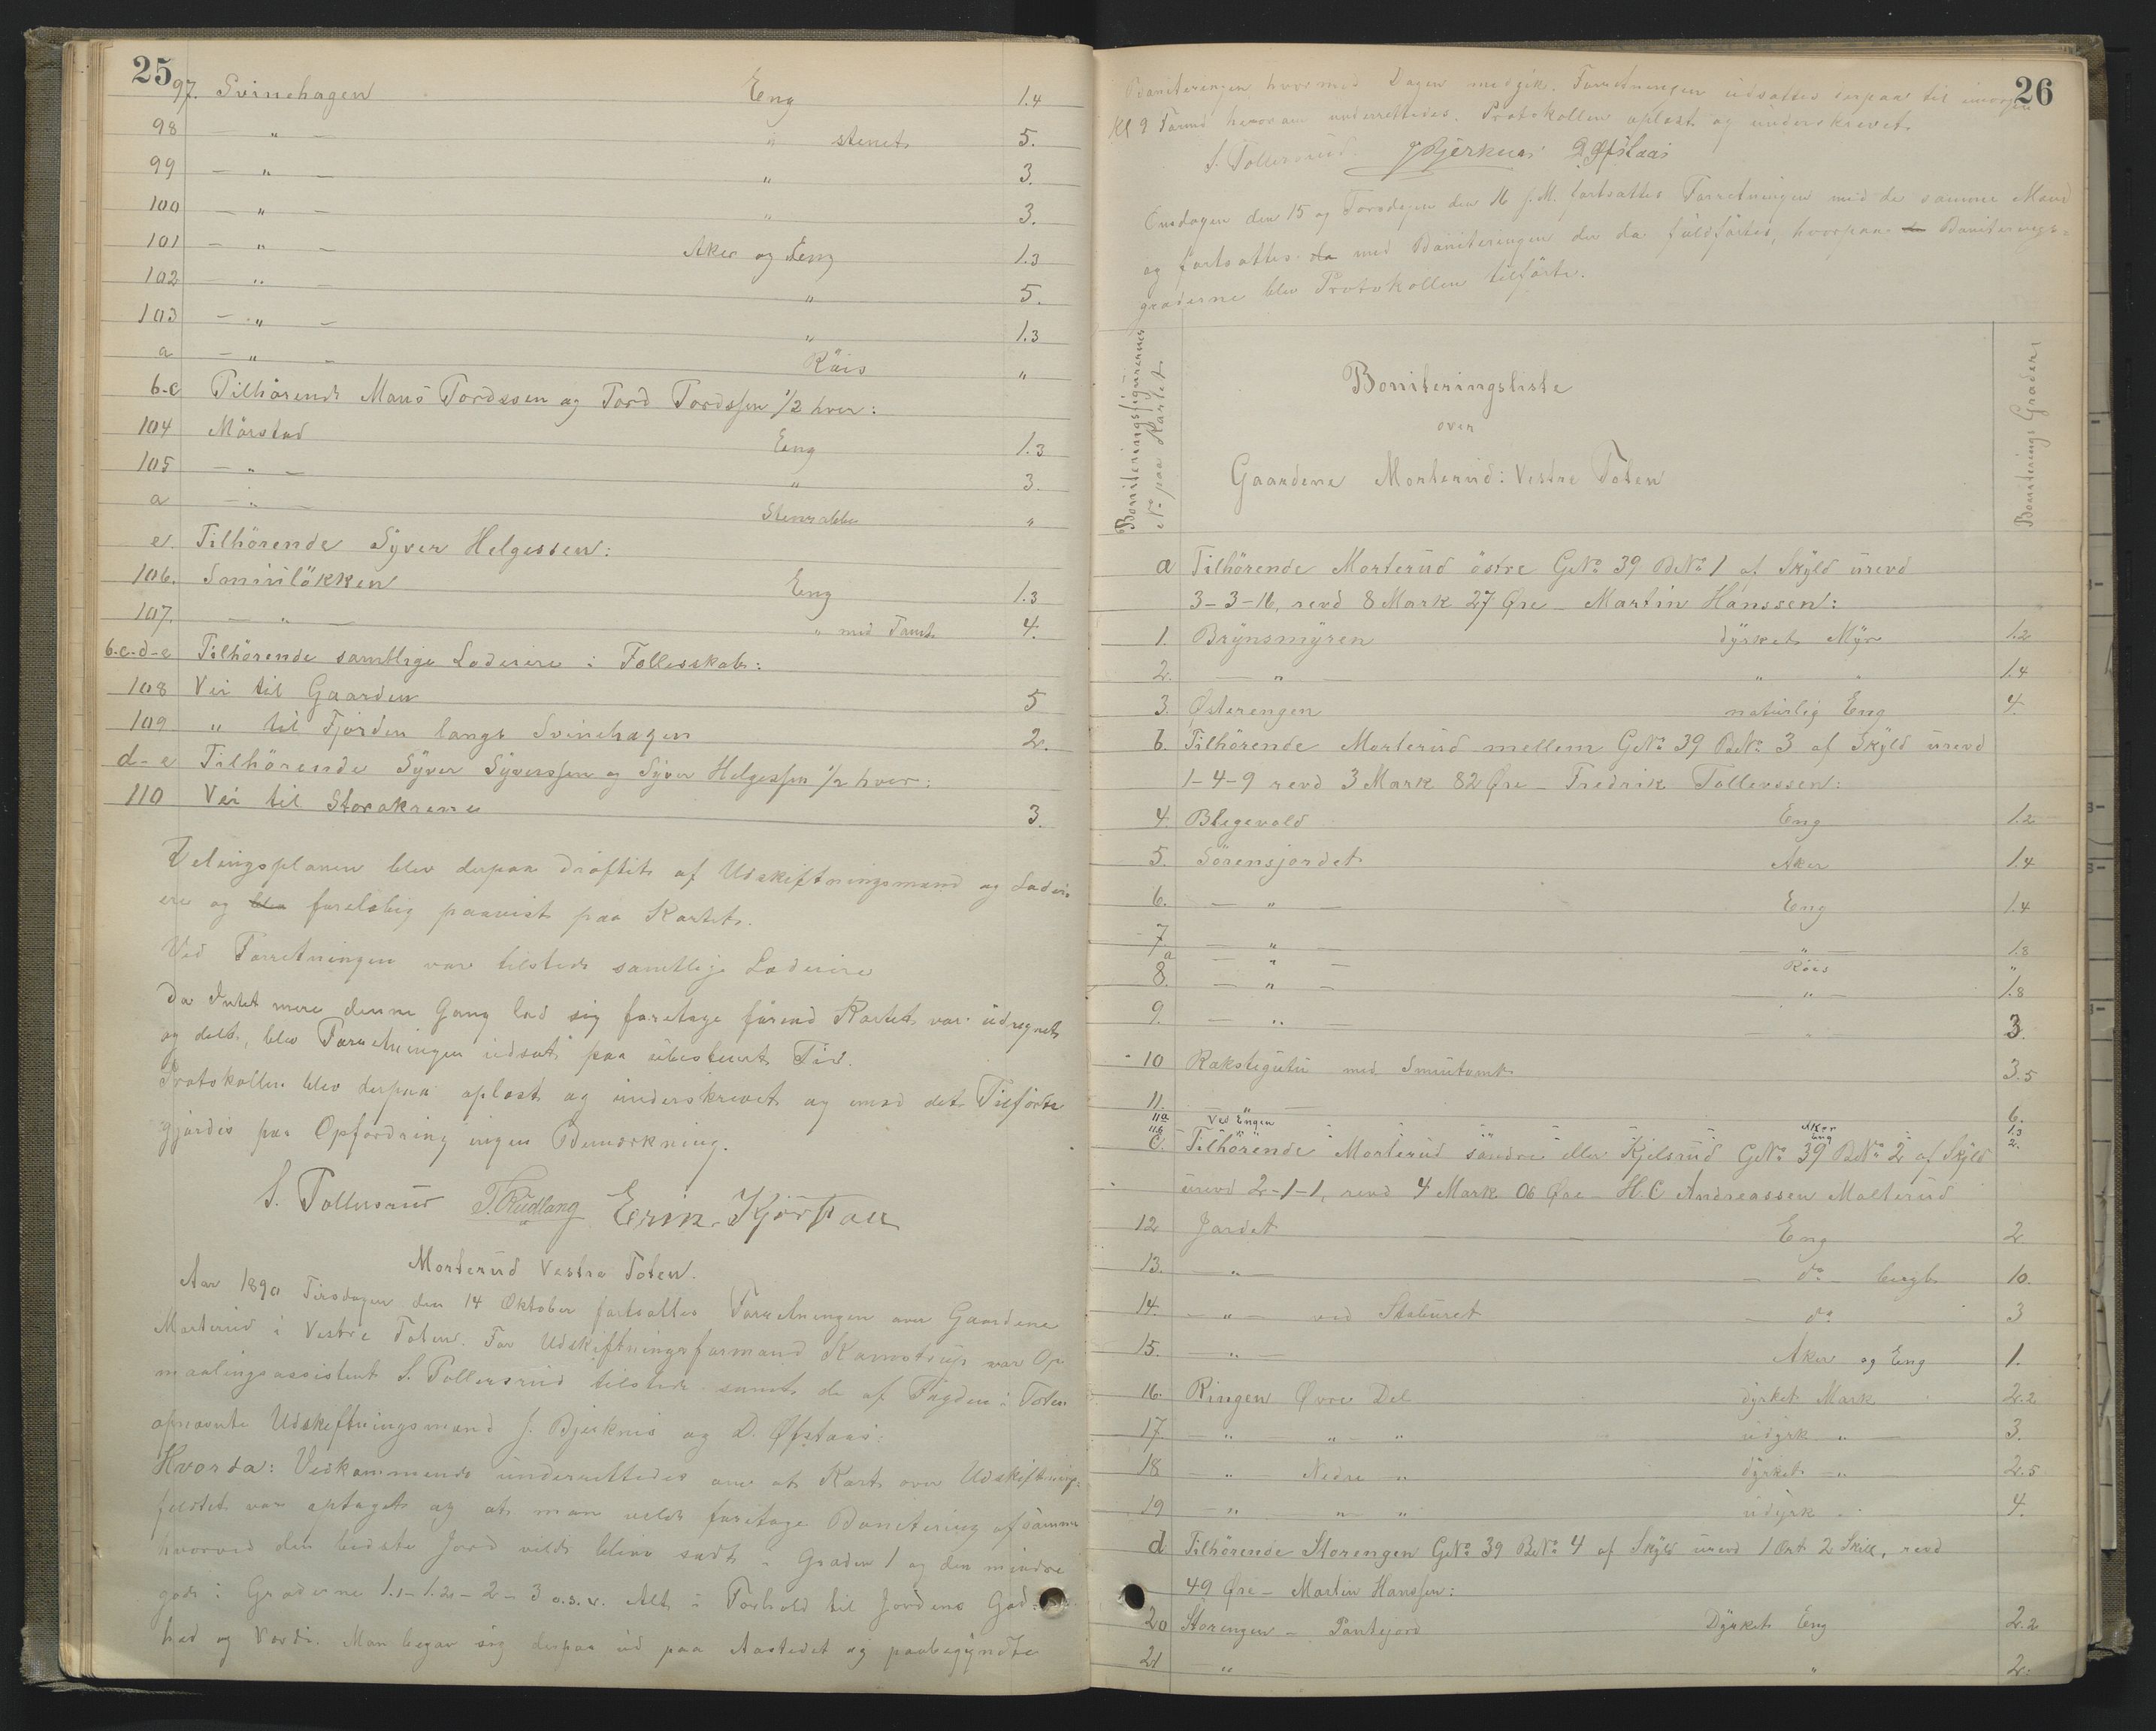 25
97. Svinehagen Eng 1.4
98 — " — " stenet 5.
99 — " — " 3.
100 — " — " 3.
101 — " — Aker og Eng 1.3
102 — " — " 5.
103 — " — " 1.3
a — " — Röis "
b-c Tilhörende Mons Tordssen og Tord Tordssen 1/2 hver:
104 Mörstad Eng 1.3
105 — " — " 3.
a — " — Stenrabbe "
e. Tilhörende Syver Helgessen:
106. Smiulökken Eng 1.3
107. — " — " med Tomt 4.
b-c-d-e Tilhörende samtlige Lodeiere i Fællesskab:
108 Vei til Gaarden 5
109 " til Fjorden langs Svinehagen 2.
d-e Tilhörende Syver Syverssen og Syver Helgessen 1/2 hver:
110 Vei til Storakrene 3.
Delingsplanen blev derpaa dröftet af Udskiftningsmænd og Lodei-
ere og foreløbig paavist paa Kartet.
Ved Forretningen var tilstede samtlige Lodeiere
Da Intet mere denne Gang lod sig foretage förend Kartet var udregnet
og delt, blev Forretningen udsat paa ubestemt Tid.
Protokollen blev derpaa oplæst og underskrevet og imod det Tilförte
gjordes paa Opfordring ingen Bemærkning.
S. Tollersrud T. Rudlang Erik Kjörstad
Morterud Vestre Toten.
Aar 1890 Tirsdagen den 14 Oktober fortsattes Forretningen over Gaardene
Morterud i Vestre Toten. For Udskiftningsformand Kamstrup var Op-
maalingsassistent S. Tollersrud tilstede samt de af Fogden i Toten
opnævnte Udskiftningsmænd J. Bjerknes og D. Øfstaas:
Hvorda: Vedkommende underrettedes om at Kart over Udskiftnings-
feltet var optaget og at man vilde foretage Bonitering af samme
hvorved den bedste Jord vilde blive sadt i Graden 1 og den mindre
gode i Graderne 1.1-1.2-2-3 o.s.v. Alt i Forhold til Jordens God-
hed og Værdi. Man begav sig derpaa ud paa Aastedet og paabegyndte
26
Boniteringen hvormed Dagen medgik. Forretningen udsattes derpaa til imorgen
Kl 9 Formd hvorom underrettedes. Protokollen oplæst og underskrevet.
S. Tollersrud J Bjerknes D Øfstaas
Onsdagen den 15 og Torsdagen den 16 s.M. fortsattes Forretningen med de samme Mænd
og fortsattes da med Boniteringen der da fuldførtes, hvorpaa Boniterings-
graderne blev Protokollen tilført.
Boniteringsfigurernes No paa Kartet
Boniterings Grader
Boniteringsliste
over
Gaardene Morterud: Vestre Toten
a Tilhörende Morterud östre GNo 39 BNo 1 af Skyld urevd
3-3-16, revd 8 Mark 27 Øre - Martin Hanssen:
1. Brynsmyren dyrket Myr 1.2
2. — " — " " 1.4
3. Østerengen naturlig Eng 4.
b. Tilhörende Morterud mellem GNo 39 BNo 3 af Skyld urevd
1-4-9 revd 3 Mark 82 Øre - Fredrik Tollerssen:
4. Blegevold Eng 1.2
5. Sörensjordet Aker 1.4
6. — " — Eng 1.4
7. — " — — " — 1.8
a — " — Röis "
8. — " — — " — 1.8
9. — " — " 3.
10 Rakstigutu med Smiutomt 3.5
11. — " — 6.
11a Ved Engen Aker 1.3
11b Eng 2.
C. Tilhörende Morterud söndre eller Kjelsrud GNo 39 BNo 2 af Skyld
urevd 2-1-1, revd 4 Mark 06 Øre - H.C Andreassen Molterud
12 Jordet Eng 2
13. — " — — do — bergt 10.
14. — " — ved Staburet — do 3
15. — " — Aker og Eng 1.
16. Ringen Øvre Del dyrket Mark 2.2
17. — " — " — " udyrk — " — 3.
18 — " — Nedre " dyrket — " — 2.5
19 — " " — " udyrk " 4.
d Tilhörende Storengen GNo 39 BNo 4 af Skyld urevd 1 Ort 2 Skill, revd
49 Øre - Martin Hanssen:
20 Storengen - Dyrket Eng 2.2
21 — " — " 2.